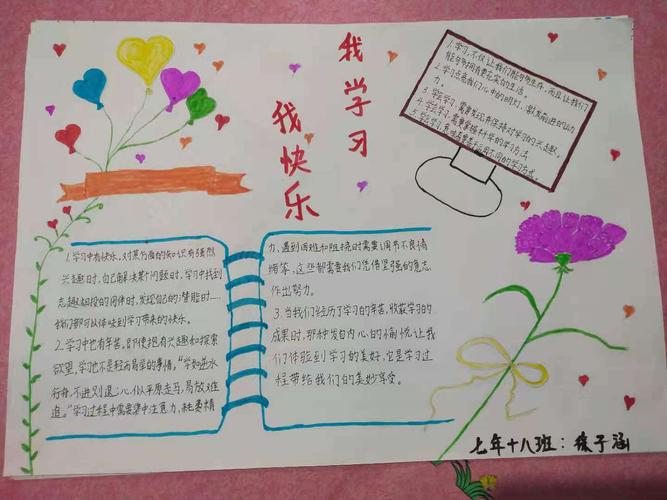 我学习
我快乐
1.学习,不仅让我们能够生存,而且让我们
能够拥有更充实的生活。
2.学习点亮我们心中的明灯,激发前进的动
力。
3.学会学习,需要发现并保持对学习的兴趣。
4.学会学习,需要掌握科学的学习方法
5.学会学习,意味着善于运用不同的学习方式。
1.学习中有快乐,对某方面的知识有强烈
兴趣时,自己解决某个问题时,学习中找到
志趣相投的同伴时,发现自己的潜能时……
我们都可以体味到学习带来的快乐。
2.学习中也有辛苦,即使抱有兴趣和探索
欲望,学习也不是轻而易举的事情。"学如逆水
行舟,不进则退;心似平原走马,易放难
追。"学习过程中需要集中注意力,耗费精
力,遇到困难和阻挠时需要调节不良情
绪等,这些都需要我们凭借坚强的意志
作出努力。
3.当我们经历了学习的辛苦,收获学习的
成果时,那种发自内心的愉悦让我
们体验到学习的美好,它是学习过
程带给我们的美妙享受。
七年十八班: 子涵